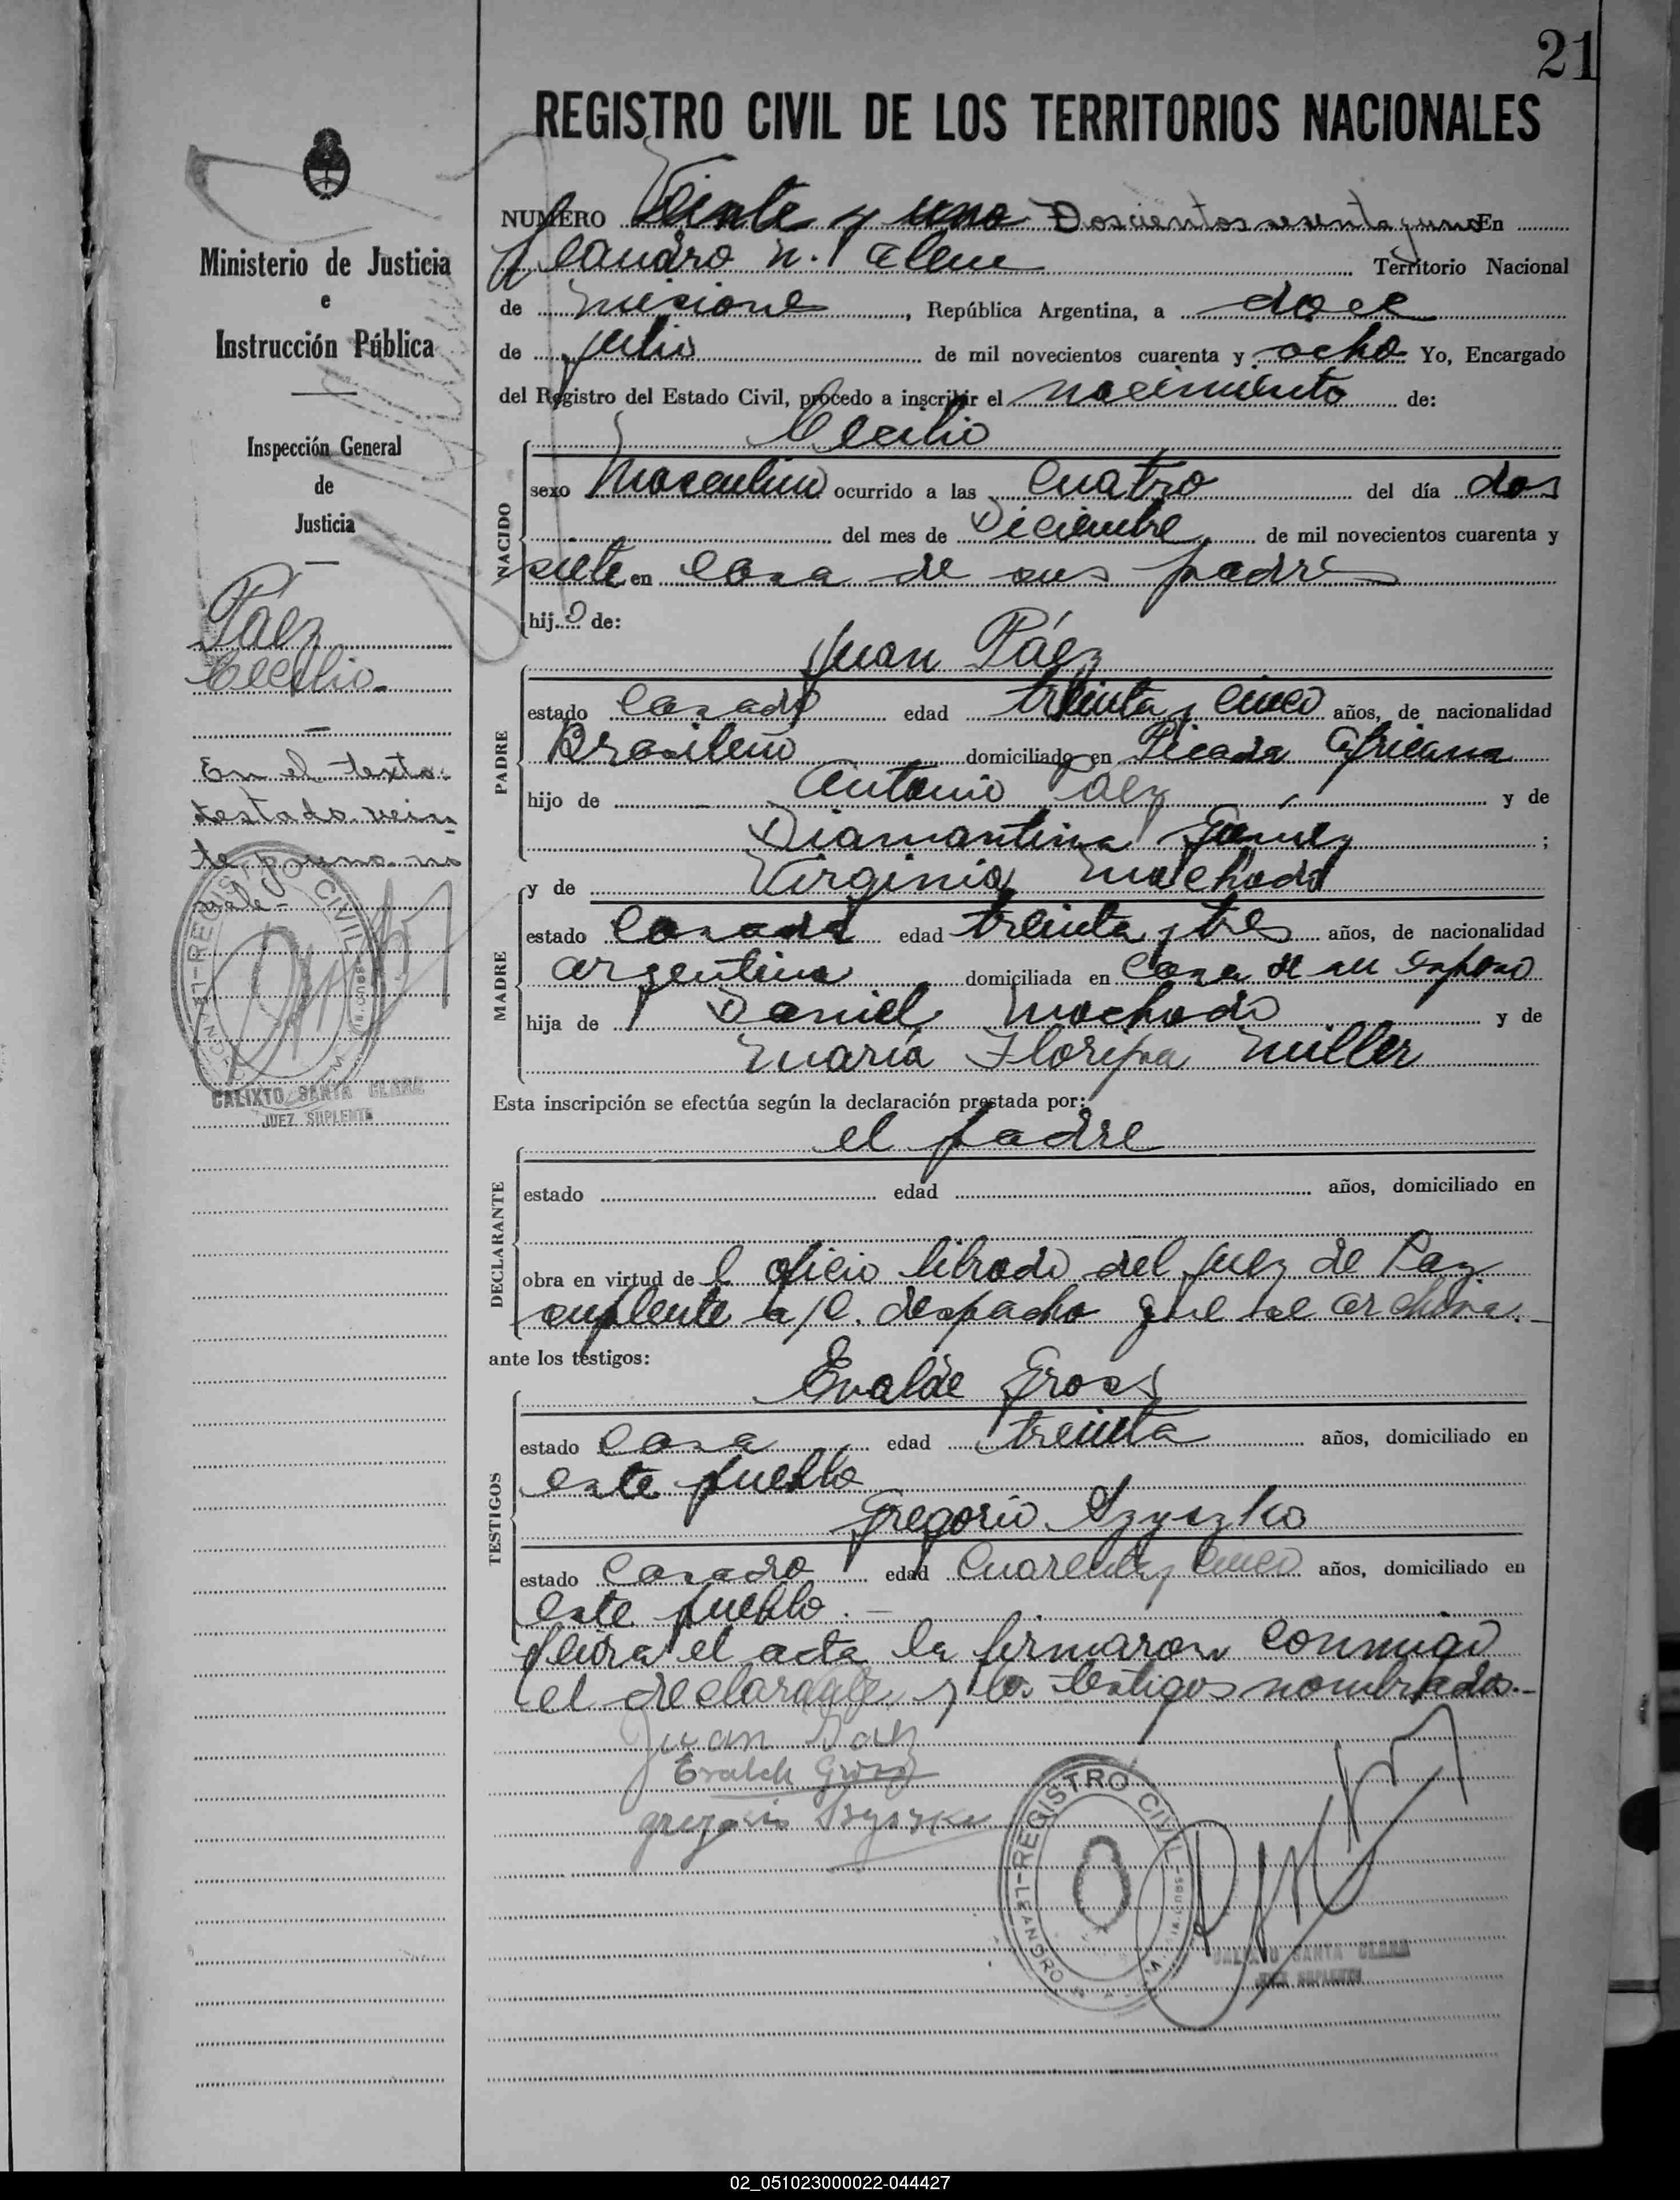 21
REGISTRO CIVIL DE LOS TERRITORIOS NACIONALES
Ministerio de Justicia
e
Instrucción Pública
Inspección General
de
Justicia
Páez
Cecilio.
En el texto:
testado vein-
te y uno no
vale-
REGISTRO CIVIL
CALIXTO SANTA CLARA
JUEZ SUPLENTE
NUMERO Veinte y uno Doscientos sesenta y uno En
Leandro N. Alem Territorio Nacional
de Misione, República Argentina, a doce
de julio de mil novecientos cuarenta y ocho Yo, Encargado
del Registro del Estado Civil, procedo a inscribir el nacimiento de:
NACIDO
Cecilio
sexo Masculino ocurrido a las cuatro del día dos
del mes de Diciembre de mil novecientos cuarenta y
siete en casa de sus padres
hij o de:
PADRE
Juan Páez
estado casado edad treinta y cinco años, de nacionalidad
Brasileño domiciliado en Picada Africana
hijo de Antonio Paez y de
Diamantina Gómez ;
MADRE
y de Virginia Machado
estado casada edad treinta y tres años, de nacionalidad
argentina domiciliada en casa de su esposo
hija de Daniel Machado y de
María Floripa Miller
Esta inscripción se efectúa según la declaración prestada por:
DECLARANTE
el padre
estado edad años, domiciliado en
obra en virtud de l oficio librado del Juez de Paz
suplente a/c. despacho que se archiva.-
ante los testigos:
TESTIGOS
Evalde Gross
estado casa edad treinta años, domiciliado en
este pueblo
Gregorio Szyszko
estado casado edad cuarenta y cinco años, domiciliado en
este pueblo.-
leida el acta la firmaron conmigo
el declarante y los testigos nombrados.-
Juan Paez
Evalde Gross
gregorio Szyszko
REGISTRO CIVIL
LEANDRO N.
CALIXTO SANTA CLARA
JUEZ SUPLENTE
02_051023000022-044427